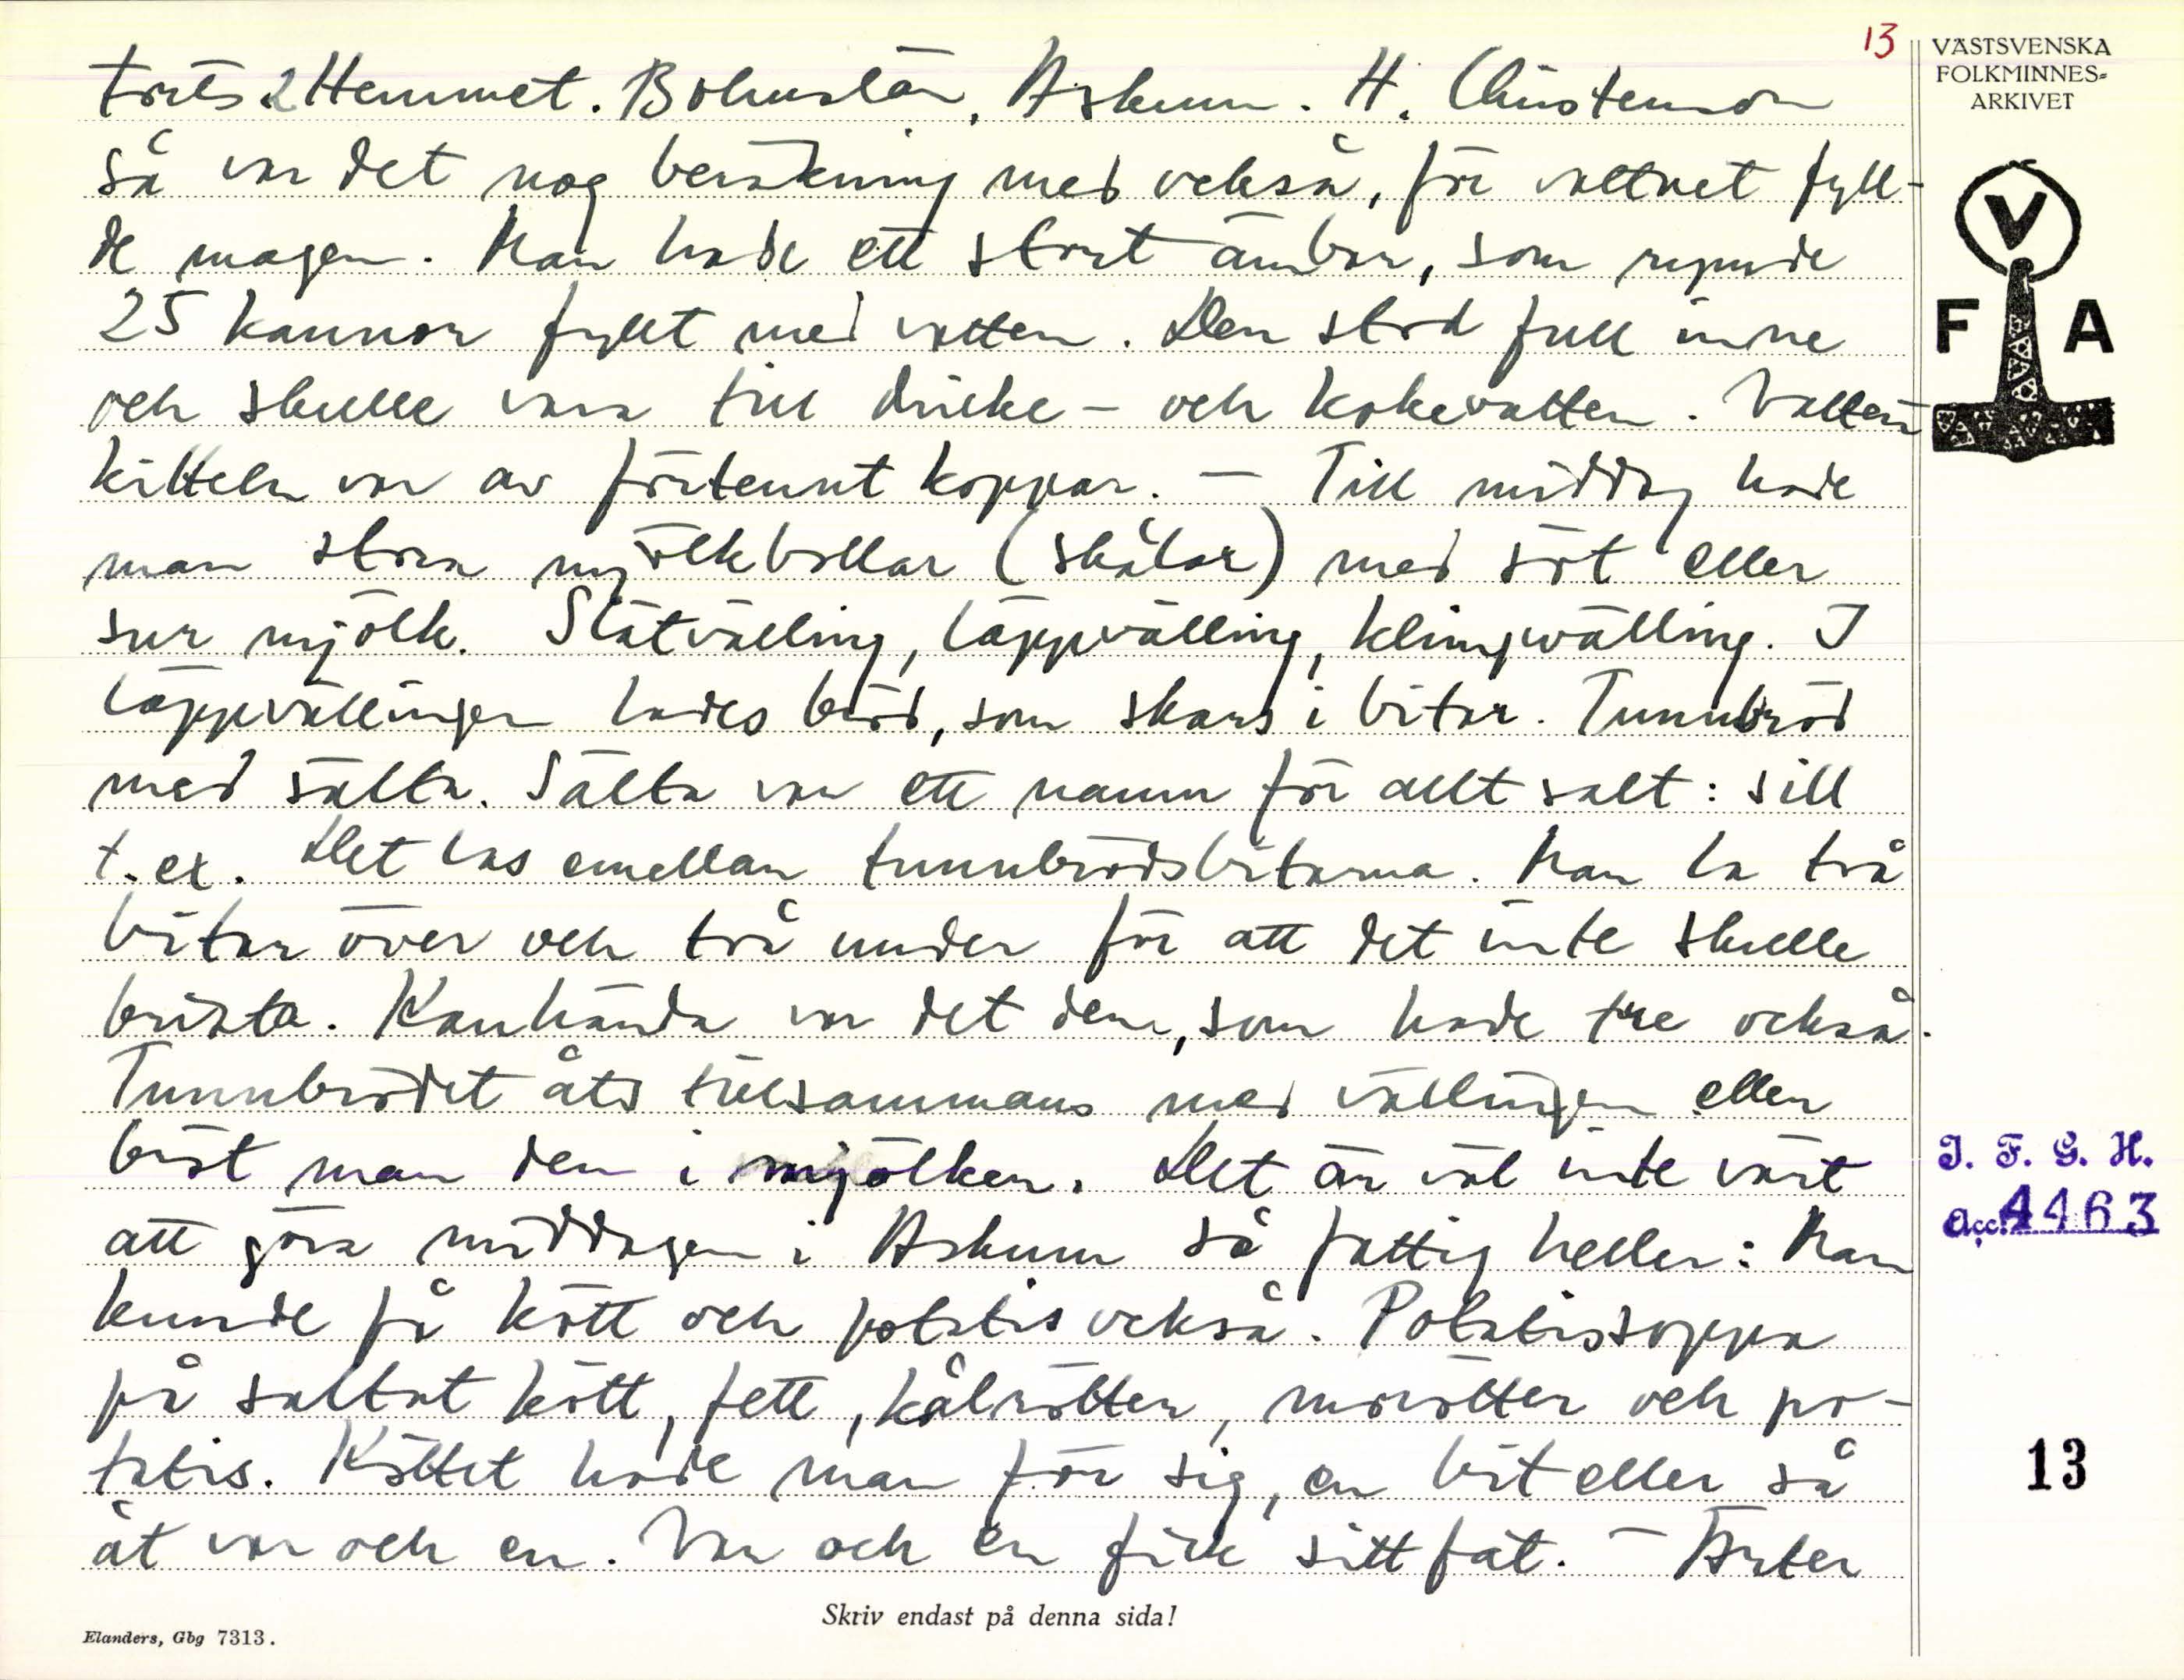 13
VÄSTSVENSKA
FOLKMINNES-
ARKIVET
forts 2 Hemmet. Bohuslän, Askum. H. Christenson
så var det nog beräkning med också, för vattnet fyll-
de magen. Man hade ett stort ämbar, som rymde
25 kannor fyllt med vatten. Den stod full inne
och skulle vara till dricke- och kokevatten. Vatten
kitteln var av förtennt koppar. – Till middag hade
man stora mjölkbollar (skålar) med söt eller
sur mjölk. Slätvälling, läppvälling, klimpvälling. I
läppvällingen lades bröd, som skars i bitar. Tunnbröd
med sälta. Sälta var ett namn för allt salt: sill
t.ex. Det las emellan tunnbrödsbitarna. Man la två
bitar över och två under för att det inte skulle
brista. Kanhända var det dem, som hade tre också.
Tunnbrödet åts tillsammans med vällingen eller
bröt man den i mjölken. Det är väl inte värt
att göra middagen i Askum så fattig heller: Man
kunde få kött och potatis också. Potatissoppa
på saltat kött, fett, kålrötter, morötter och po-
tatis. Köttet hade man för sig, en bit eller så
åt var och en. Var och en fick sitt fat. – Ärter
V
F A
I. F. G. H.
Acc. 4463
13
Skriv endast på denna sida!
Elanders, Gbg 7313.